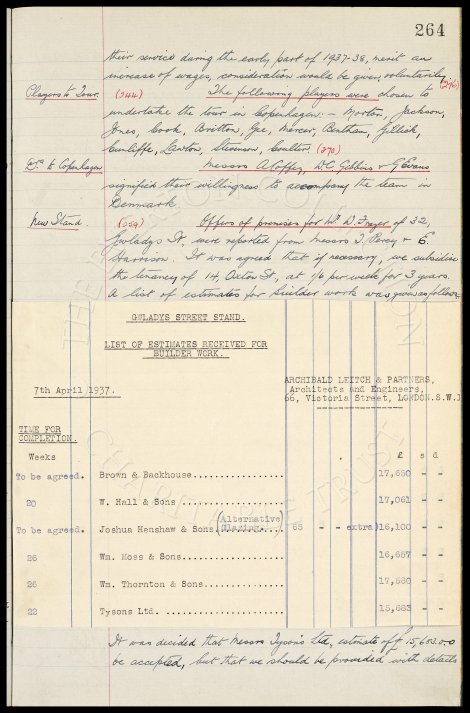 264
their service during the early part of 1937-38, merit an
increase of wages, consideration would be given voluntarily.
Players to Tour. (244) The following players were chosen to
undertake the tour in Copenhagen:- Morton, Jackson,
Jones, Cook, Britton, Gee, Mercer, Bentham, Gillick,
Cunliffe, Lawton, Stevenson, Coulter. (270)
D.º to Copenhagen Messrs A. Coffey, W.C. Gibbins & G Evans
signified their willingness to accompany the team in
Denmark
New Stand (259) Offers of premises for Mr D. Frazer of 32,
Gwladys St, were reported from messrs J. Percy & E.
Harrison. It was agreed that if necessary, we subsidise
the tenancy of 14, Oxton St., at 1/6 per week for 3 years.
A list of estimates for builder work was given as follows:-
GWLADYS STREET STAND.
LIST OF ESTIMATES RECEIVED FOR
BUILDER WORK.
7th April 1937.
ARCHIBALD LEITCH & PARTNERS,
Architects and Engineers,
66, Victoria Street, LONDON.S.W.1
TIME FOR
COMPLETION.
Weeks £ s d
To be agreed. Brown & Backhouse................ 17,650 - -
20 W. Hall & Sons................... 17,061 - -
To be agreed. Joshua Henshaw & Sons (Alternative Glazing.... 65 - - extra) 16,100 - -
26 Wm. Moss & Sons.................. 16,657 - -
26 Wm. Thornton & Sons.............. 17,580 - -
22 Tysons Ltd. ..................... 15,683 - -
It was decided that Messrs Tyson's Ltd, estimate of £15,683.0.0
be accepted, but that we should be provided with details